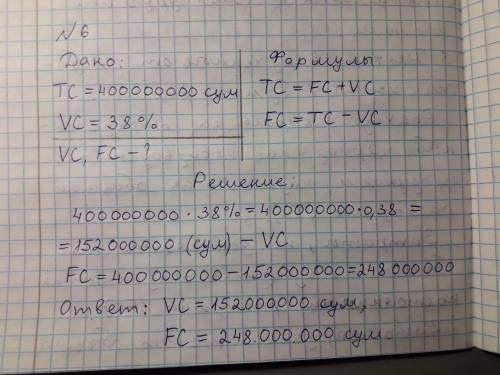 №6
Дано:
TC = 400000000 сум
VC = 38%
VC, FC - ?
Формулы
TC = FC + VC
FC = TC - VC
Решение:
400000000 · 38% = 400000000 · 0,38 =
= 152000000 (сум) - VC
FC = 400000000 - 152000000 = 248000000
Ответ: VC = 152000000 сум,
FC = 248.000.000 сум